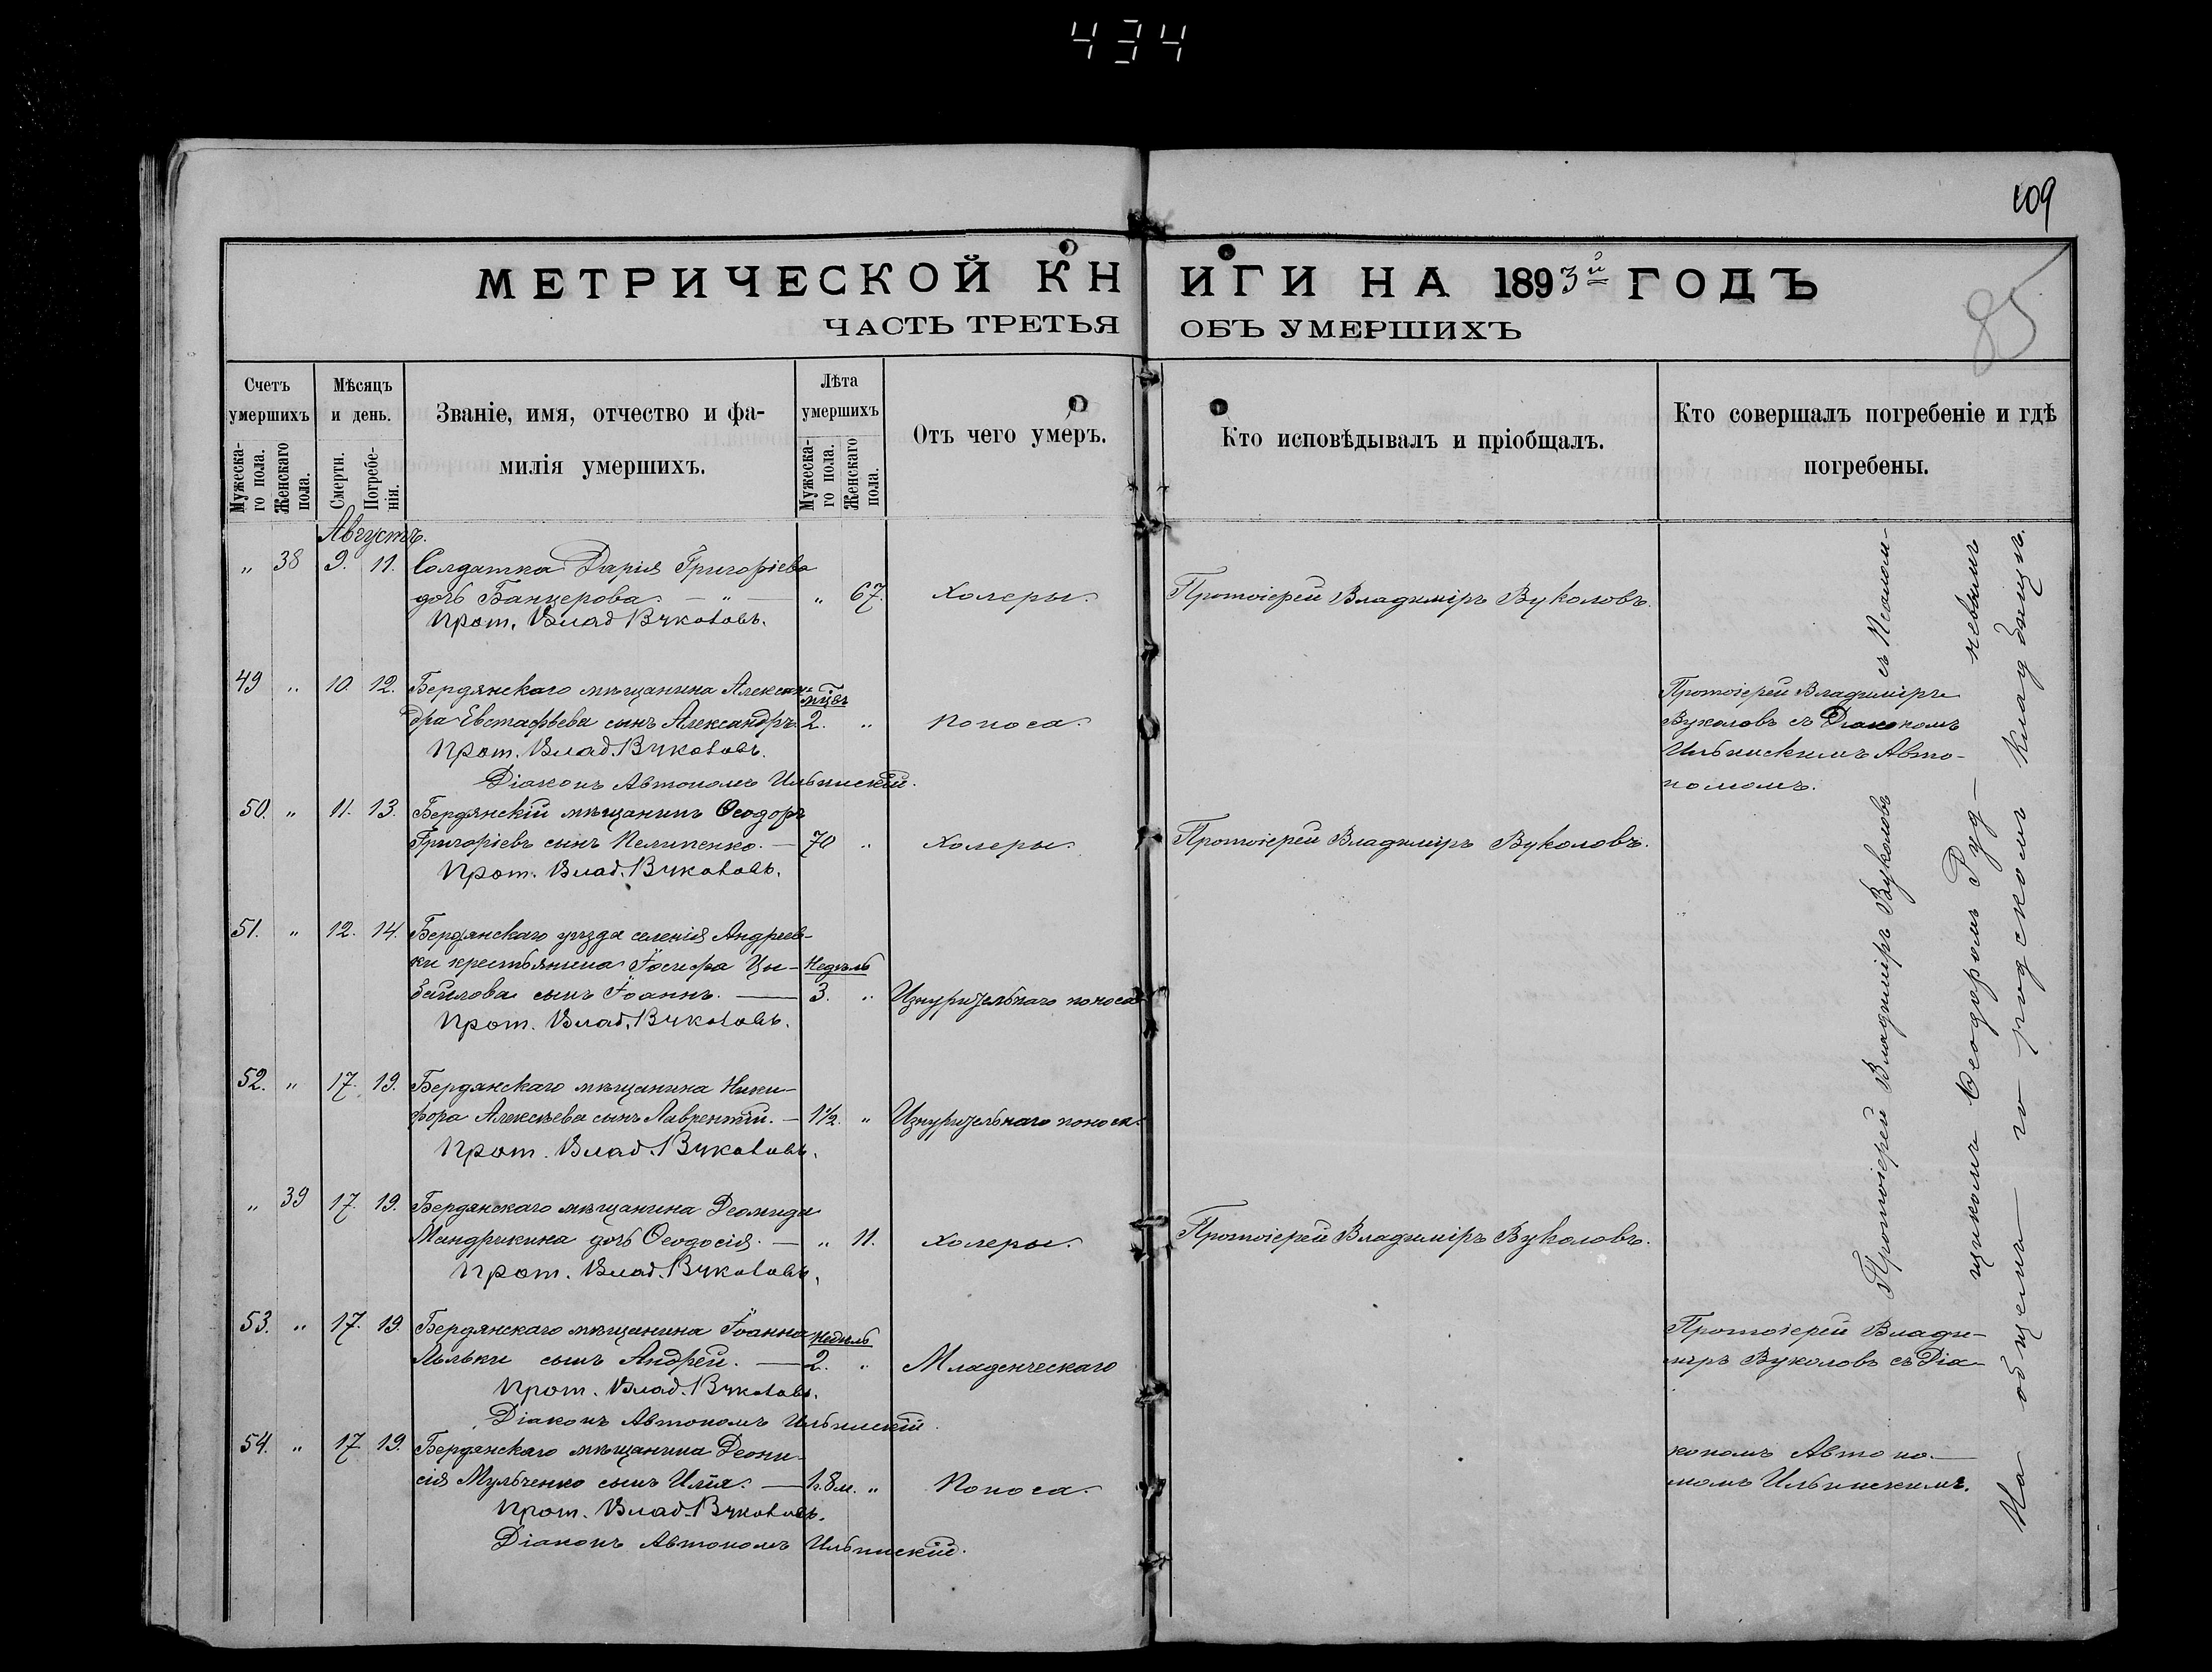 434
109
85
МЕТРИЧЕСКОЙ КНИГИ НА 1893й ГОДЪ
ЧАСТЬ ТРЕТЬЯ ОБЪ УМЕРШИХЪ
Счетъ умершихъ
Мужескаго пола.
Женскаго пола.
Мѣсяцъ и день.
Смерти.
Погребенія.
Званіе, имя, отчество и фамилія умершихъ.
Лѣта умершихъ
Мужескаго пола.
Женскаго пола.
Отъ чего умеръ.
Кто исповѣдывалъ и пріобщалъ.
Кто совершалъ погребеніе и гдѣ погребены.
Августъ.
„ 38 9. 11. Солдатка Дарія Григоріева
дочь Банцерова. — „ — „ 67. Холеры. Протоіерей Владиміръ Вуколовъ.
Прот. Влад. Вуколовъ.
49 „ 10. 12. Бердянскаго мѣщанина Алексан- мѣцъ Протоіерей Владиміръ
дра Евстафьева сынъ Александръ. 2. „ Поноса. Вуколовъ съ Діакономъ
Прот. Влад. Вуколовъ. Ильинскимъ Авто-
Діаконъ Автономъ Ильинскій. номомъ.
50. „ 11. 13. Бердянскій мѣщанинъ Ѳеодоръ
Григоріевъ сынъ Пелипенко. — 70 „ Холеры. Протоіерей Владиміръ Вуколовъ.
Прот. Влад. Вуколовъ.
51. „ 12. 14. Бердянскаго уѣзда селенія Андреев-
ки крестьянина Іосифа Цы- Недѣль
бейлова сынъ Іоаннъ. — 3. „ Изнурительнаго поноса
Прот. Влад. Вуколовъ.
52. „ 17. 19. Бердянскаго мѣщанина Ники-
фора Алексѣева сынъ Лаврентій. — 1½. „ Изнурительнаго поноса.
Прот. Влад. Вуколовъ.
„ 39 17. 19. Бердянскаго мѣщанина Деомида
Мандрикина дочь Ѳеодосія. — „ 11. Холеры. Протоіерей Владиміръ Вуколовъ.
Прот. Влад. Вуколовъ.
53. „ 17. 19. Бердянскаго мѣщанина Іоанна Недѣль Протоіерей Влади-
Лыльки сынъ Андрей. — 2. „ Младенческаго міръ Вуколовъ съ Діа-
Прот. Влад. Вуколовъ.
Діаконъ Автономъ Ильинскій.
54. „ 17 19. Бердянскаго мѣщанина Деони- кономъ Автоно-
сія Мульченко сынъ Илія. — 1г.8м. „ Поноса. момъ Ильинскимъ.
Прот. Влад. Вуколовъ.
Діаконъ Автономъ Ильинскій.
Протоіерей Владиміръ Вуколовъ съ Псалом-
щикомъ Ѳеодоромъ Руд- невымъ
На общемъ городскомъ кладбищѣ.